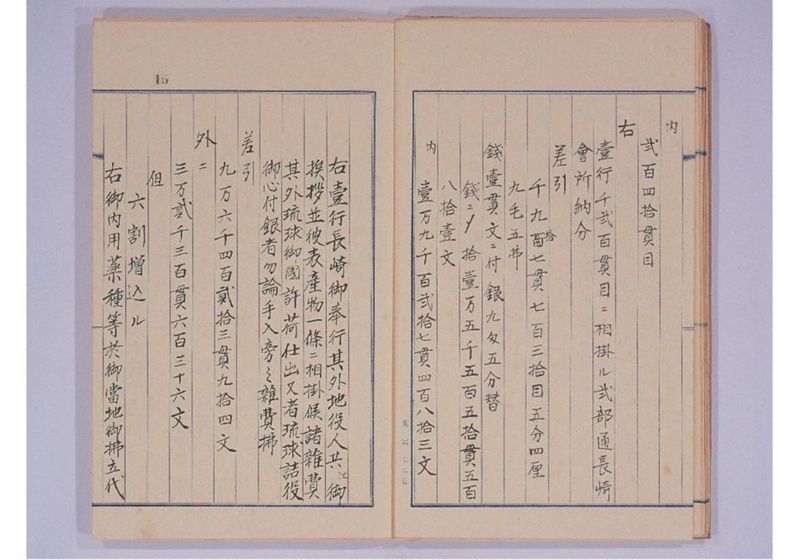 内
弐百四拾貫目
右
壹行千弐百貫目ニ相掛ル弐部通長崎
會所納分
差引
千九百拾七貫七百三拾目五分四厘
九毛五弗
錢壹貫文ニ付銀九匁五分替
錢ニ〆拾壹万五千五百五拾貫五百
八拾壹文
内
壹万九千百弐拾七貫四百八拾三文
右壹行長崎御奉行其外地役人共江御
挨拶並彼表産物一條ニ相掛候諸雜費
其外琉球御國許荷仕出又者琉球詰役
御心付銀者勿論手入旁々雜費拂
差引
九万六千四百貳拾三貫九拾四文
外ニ
三万貳千三百貫六百三十六文
但
六割増込ル
右御内用藥種等於御當地御拂立代
15